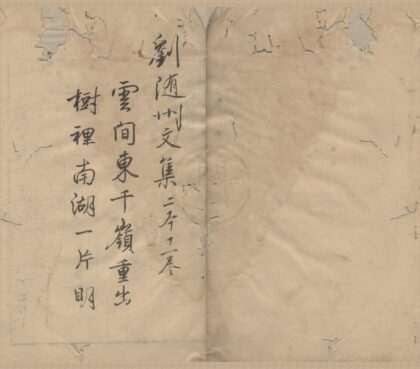 劉随州文集二本十一卷
雲間東千嶺重出
樹裡南湖一片明